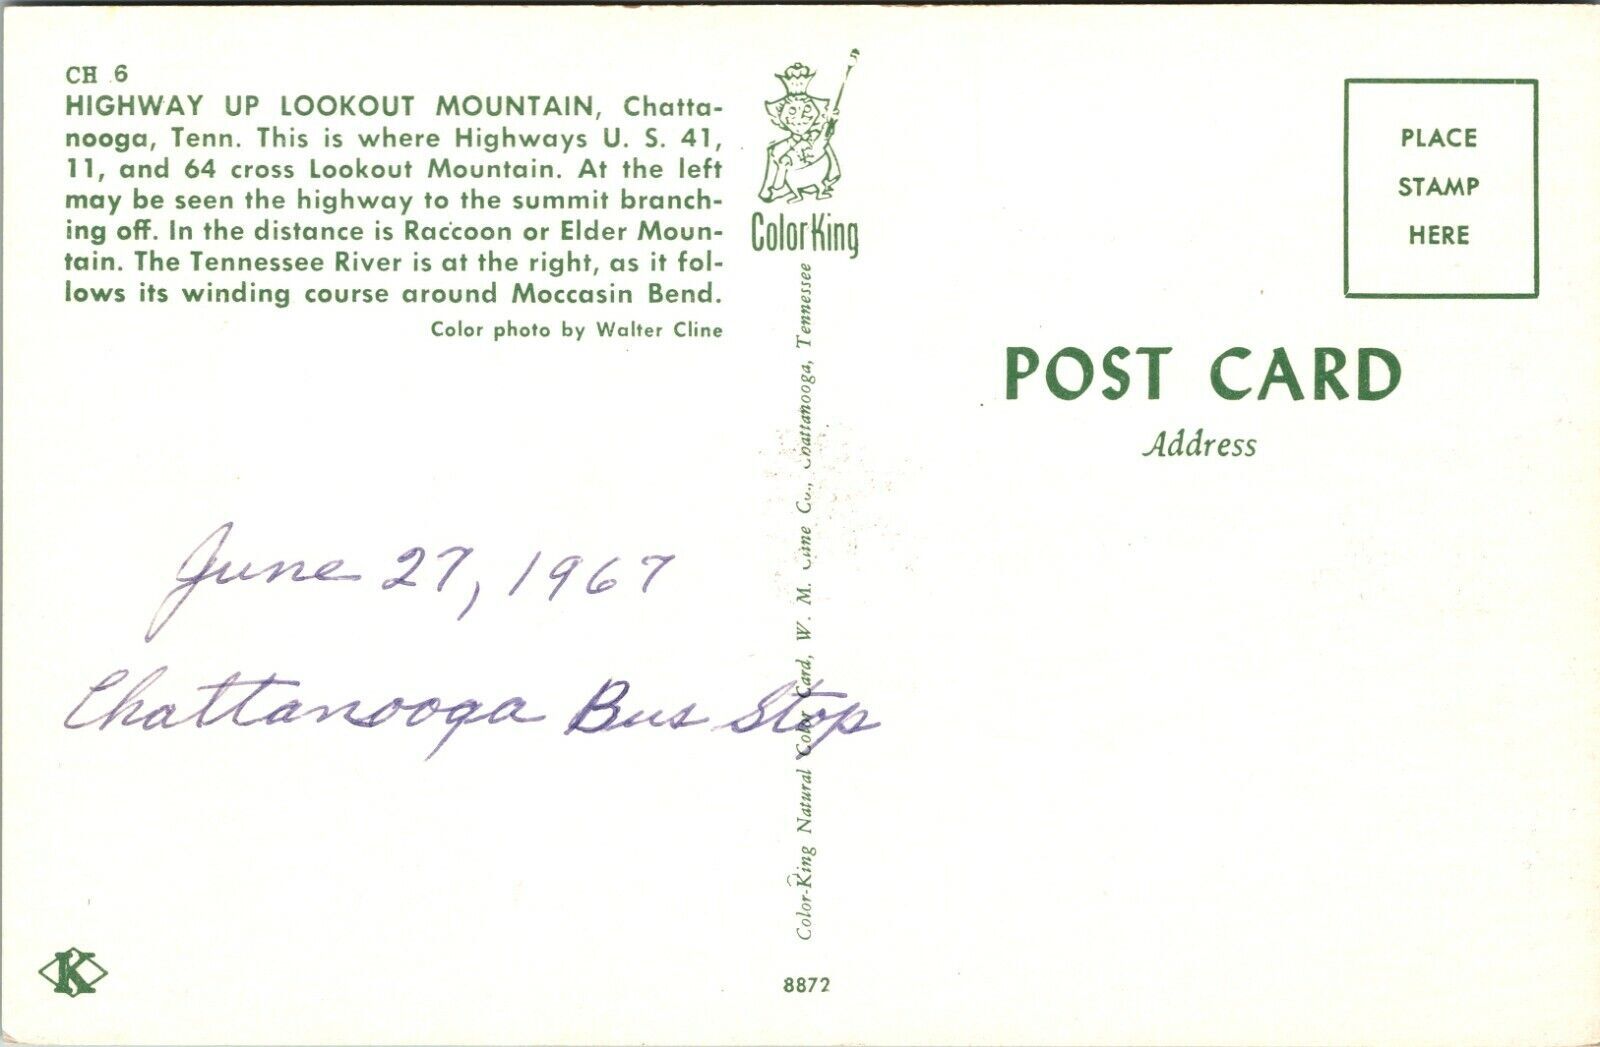 CH 6
HIGHWAY UP LOOKOUT MOUNTAIN, Chatta-
nooga, Tenn. This is where Highways U. S. 41,
11, and 64 cross Lookout Mountain. At the left
may be seen the highway to the summit branch-
ing off. In the distance is Raccoon or Elder Moun-
tain. The Tennessee River is at the right, as it fol-
lows its winding course around Moccasin Bend.
Color photo by Walter Cline
June 27, 1967
Chattanooga Bus Stop
K
ColorKing
Color-King Natural Color Card, W. M. Cline Co., Chattanooga, Tennessee
8872
PLACE
STAMP
HERE
POST CARD
Address